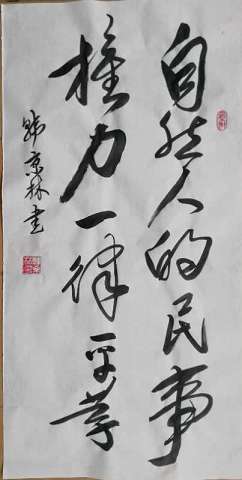 自然人的民事
権力一律平等
韩京林书